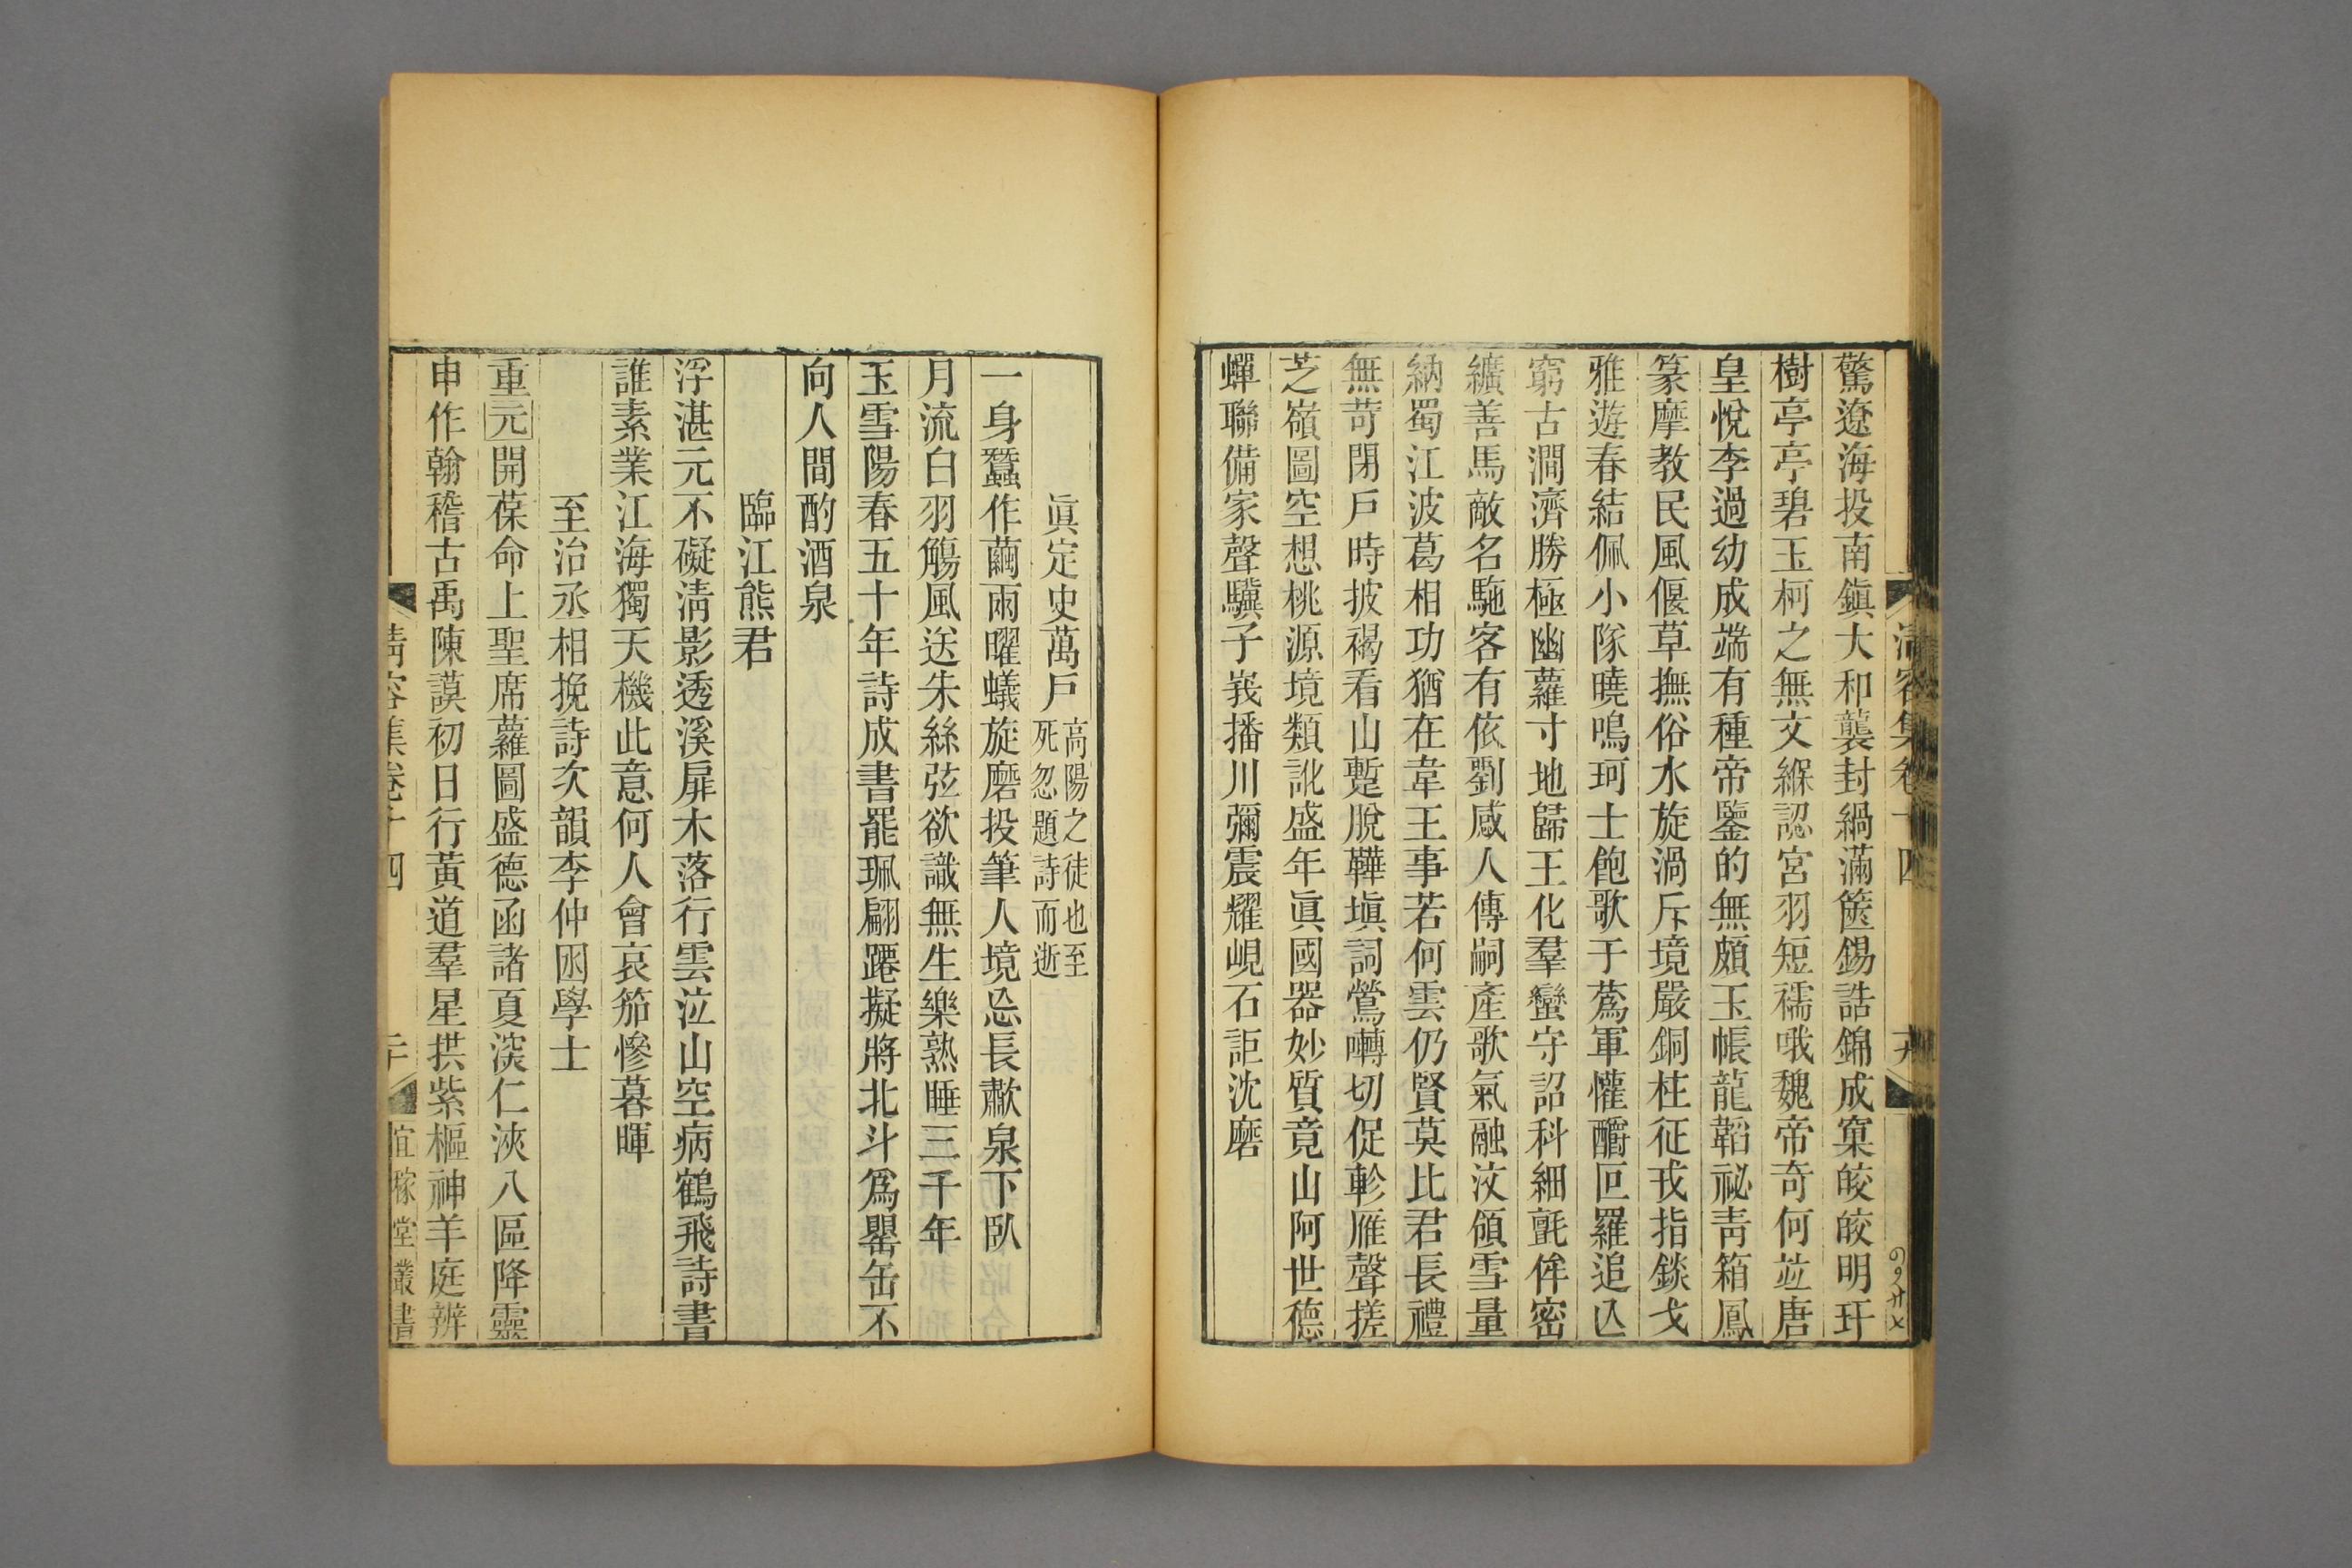 驚遼海投南鎭大和襲封緺滿篋錫誥錦成窠皎皎明玕
樹亭亭碧玉柯之無文緥認宮羽短襦哦魏帝奇何竝唐
皇悅李過幼成端有種帝鑒的無頗玉帳龍韜祕靑箱鳳
篆摩教民風偃草撫俗水旋渦斥境嚴銅柱征戎指錟戈
雅遊春結佩小隊曉鳴珂士飽歌于蔿軍懽釂叵羅追亾
窮古澗濟勝極幽蘿寸地歸王化羣蠻守詔科細氈侔密
纊善馬敵名駞客有依劉感人傳嗣產歌氣融汶頠雪量
納蜀江波葛相功猶在韋王事若何雲仍賢莫比君長禮
無苛閉戶時披褐看山蹔脫鞾塡詞鶯囀切促軫雁聲搓
芝嶺圖空想桃源境類訛盛年眞國器妙質竟山阿世德
蟬聯備家聲驥子峩播川彌震耀峴石詎沈磨
清容集卷十四
眞定史萬戶
高陽之徒也至
死忽題詩而逝
一身蠶作繭兩曜蟻旋磨投筆人境忘長歗泉下臥
月流白羽觴風送朱絲弦欲識無生樂熟睡三千年
玉雪陽春五十年詩成書罷珮翩躚擬將北斗爲罌缶不
向人間酌酒泉
臨江熊君
浮湛元不礙淸影透溪扉木落行雲泣山空病鶴飛詩書
誰素業江海獨天機此意何人會哀笳慘暮暉
至治丞相挽詩次韻李仲囦學士
重元開葆命上聖席蘿圖盛德函諸夏湥仁浹八區降靈
申作翰稽古禹陳謨初日行黃道羣星拱紫樞神羊庭辨
清容集卷十四
二十
宜稼堂叢書